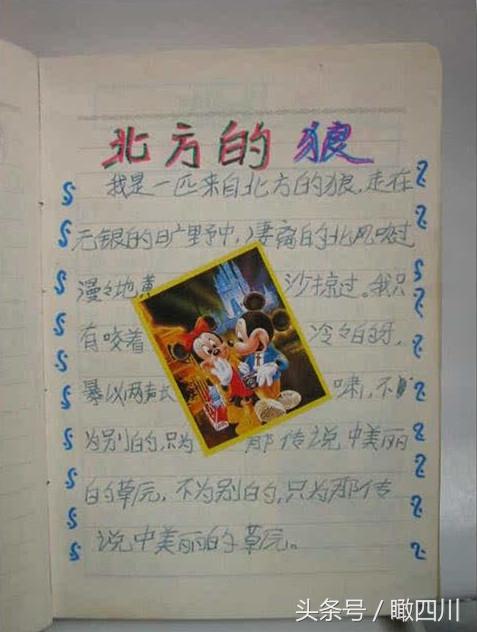 北方的狼
我是一匹来自北方的狼,走在
无银的旷野中,凄离的北风吹过
漫々地黄 沙掠过。我只
有咬着 冷々白的牙,
暴以两声长 啸,不
为别的,只为 那传说中美丽
的草原,不为别的,只为那传
说中美丽的草原。
头条号 / 瞰四川